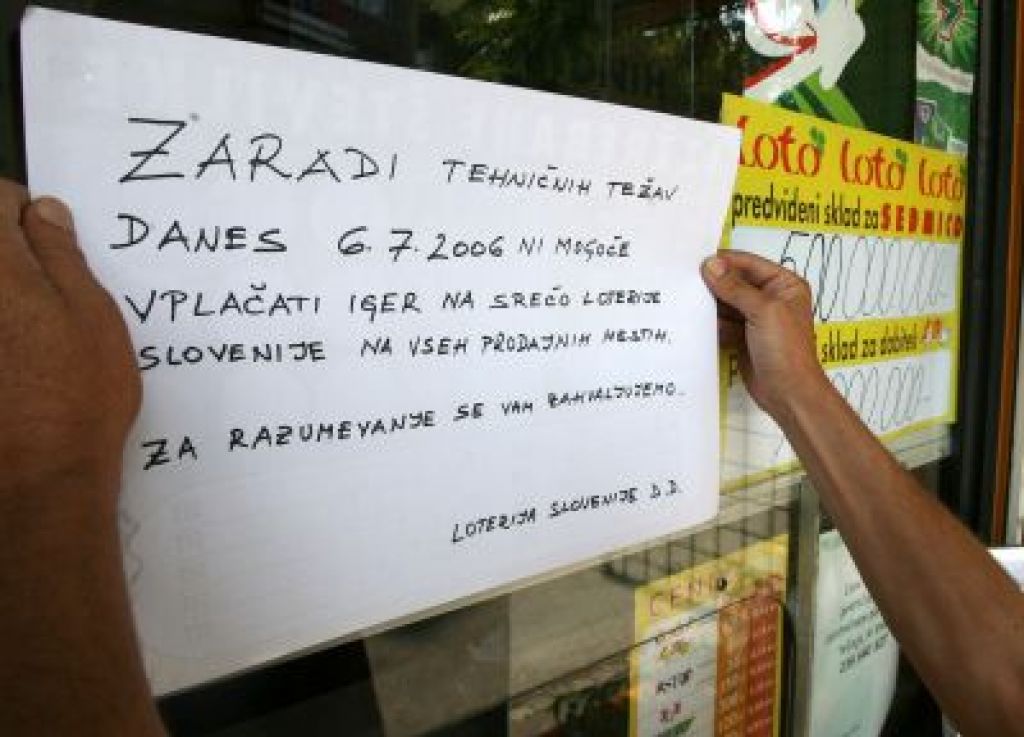 ZARADI TEHNIČNIH TEŽAV
DANES 6.7.2006 NI MOGOČE
VPLAČATI IGER NA SREČO LOTERIJE
SLOVENIJE NA VSEH PRODAJNIH MESTIH.
ZA RAZUMEVANJE SE VAM ZAHVALJUJEMO.
LOTERIJA SLOVENIJE D.D.
loto loto loto
predvideni sklad za SEDMICO
500.000.000.-
sklad za dobitek
000.000.-
CENIK